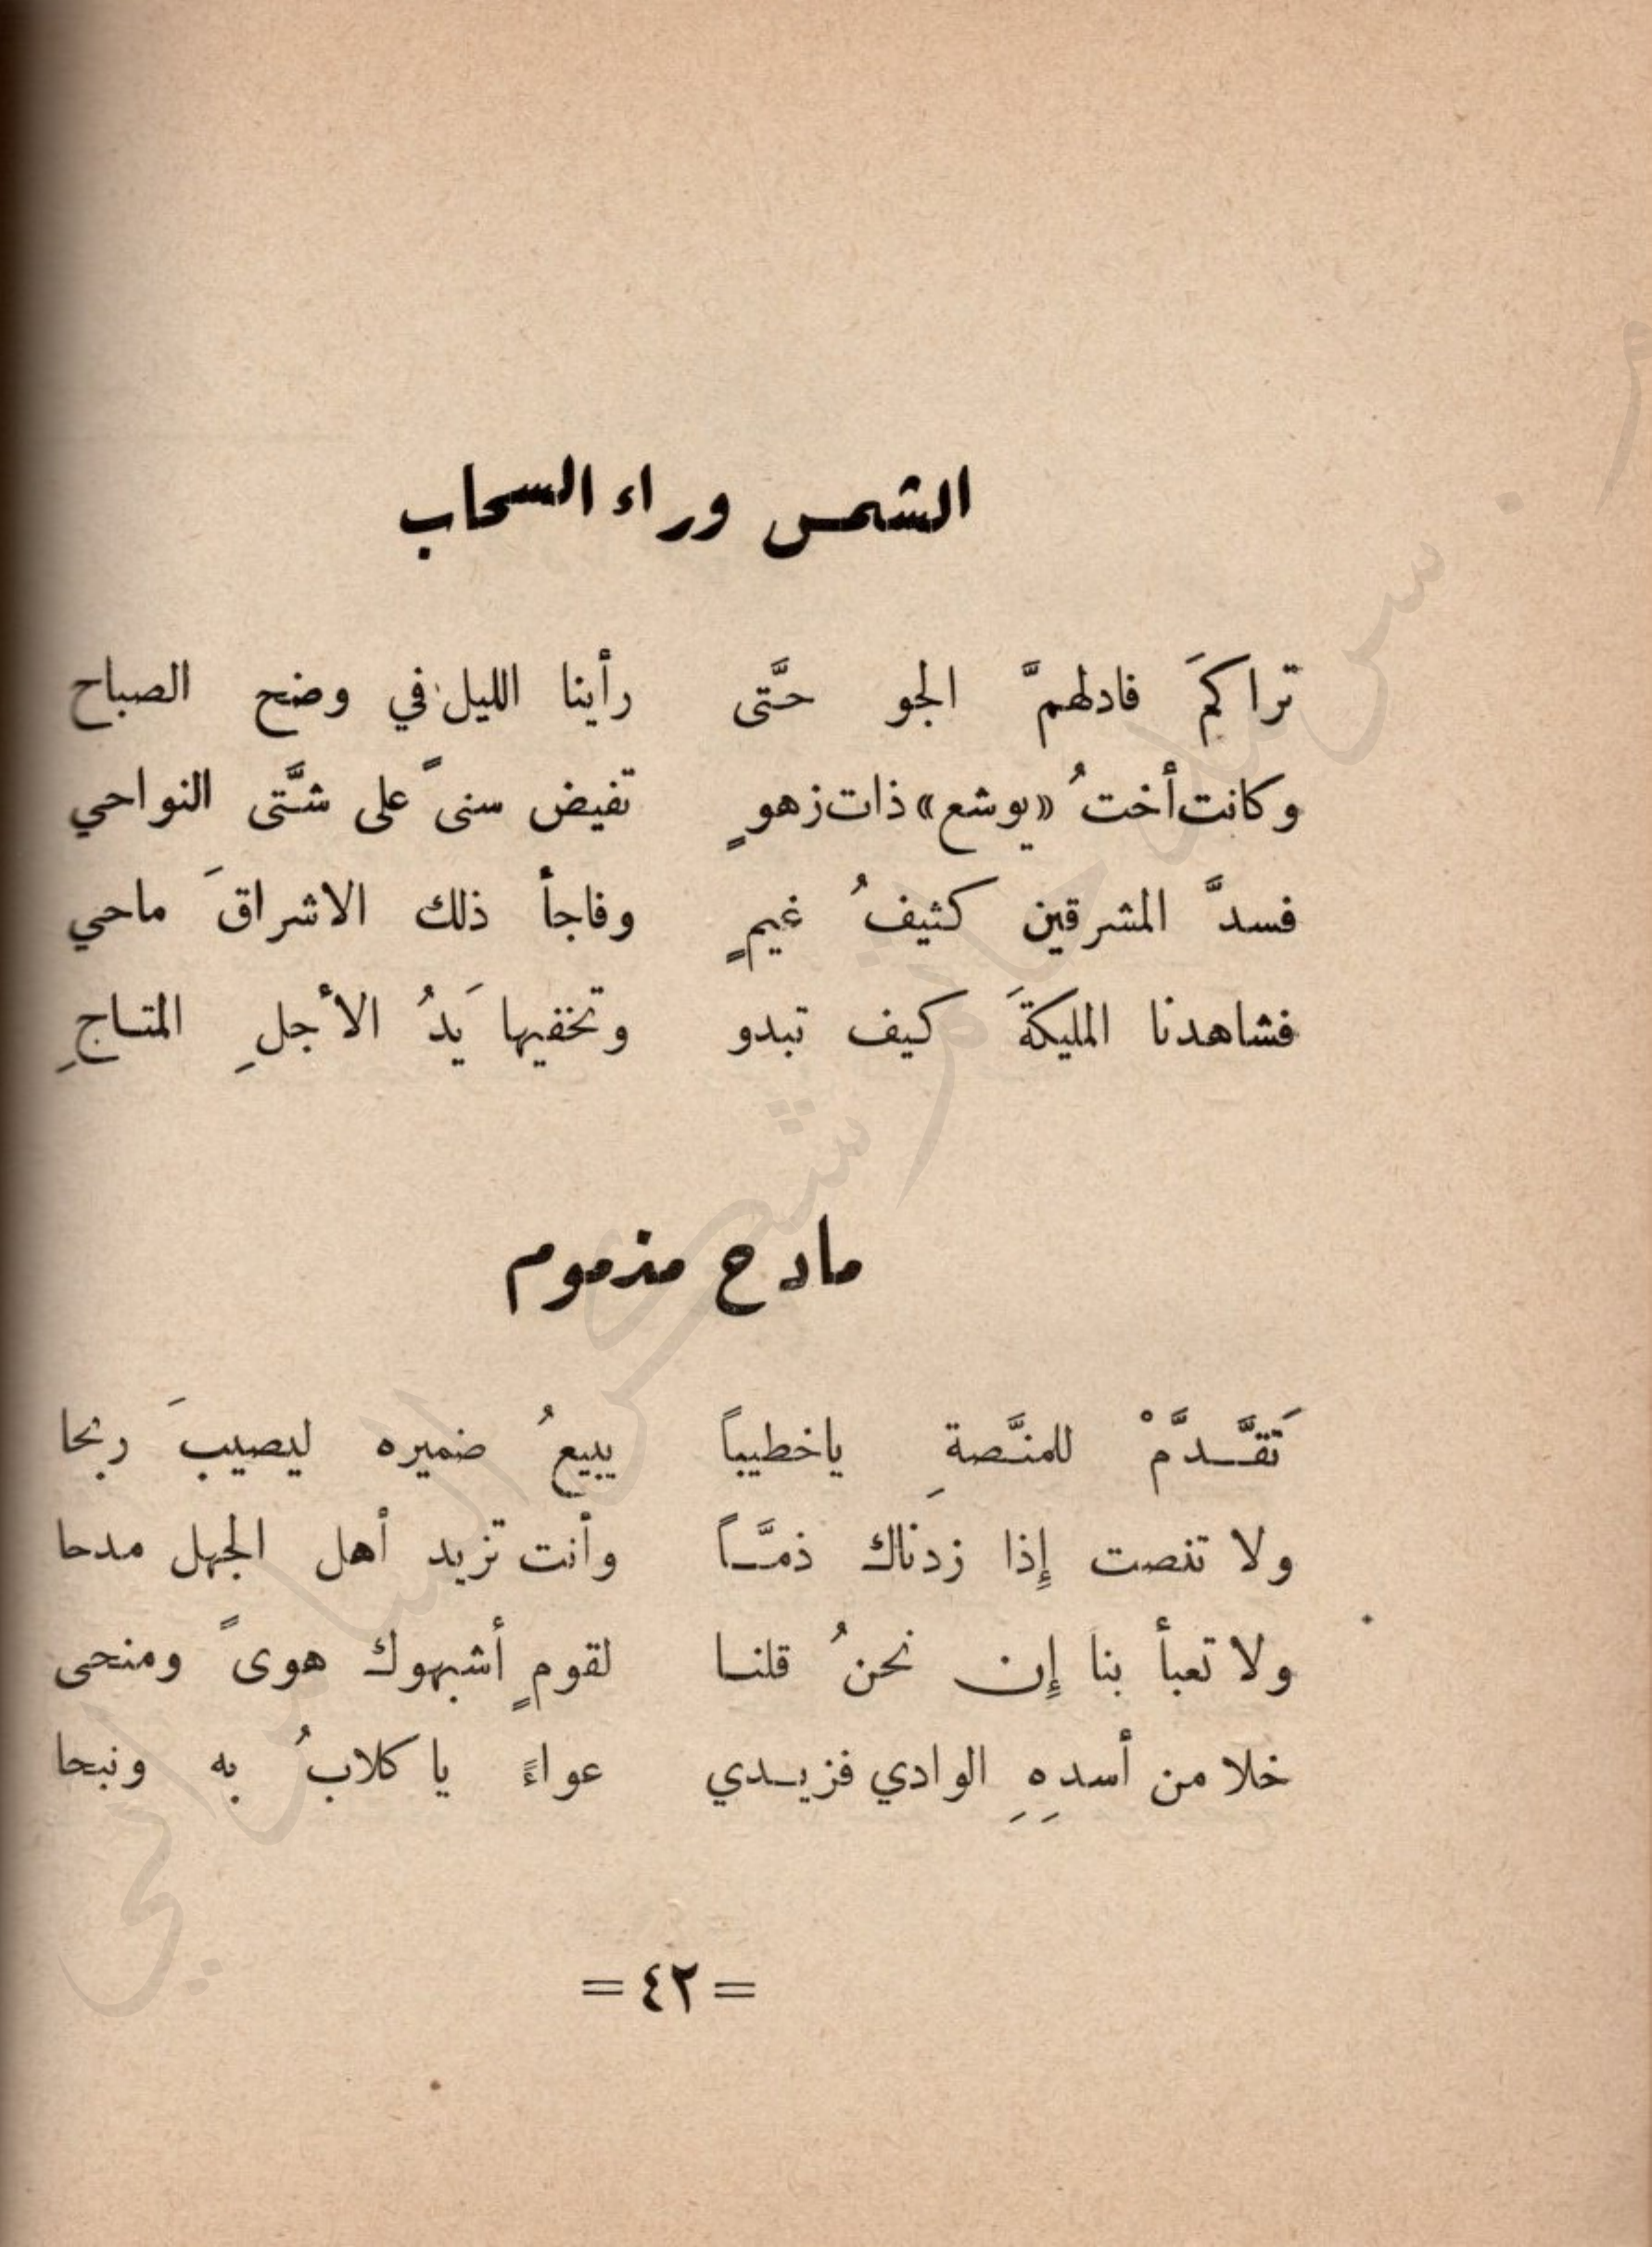 الشمس وراء السحاب
تراكمَ فادلهمَّ الجو حتَّى رأينا الليل في وضح الصباح
وكانت أختُ «يوشع» ذات زهوٍ تفيض سنىً على شتَّى النواحي
فسدَّ المشرقين كثيفُ غيمٍ وفاجأ ذلك الاشراقَ ماحي
فشاهدنا المليكةَ كيف تبدو وتخفيها يَدُ الأجلِ المتاحِ
مادح مذموم
تَقَّدَّمْ للمنَّصةِ ياخطيباً يبيعُ ضميره ليصيبَ ربحا
ولا تنصت إِذا زدناك ذمَّاً وأنت تزيد أهل الجهل مدحا
ولا تعبأ بنا إِن نحنُ قلنا لقومٍ أشبهوك هوىً ومنحى
خلا من أسدِهِ الوادي فزيدي عواءً يا كلابُ به ونبحا
= ٤٢ =